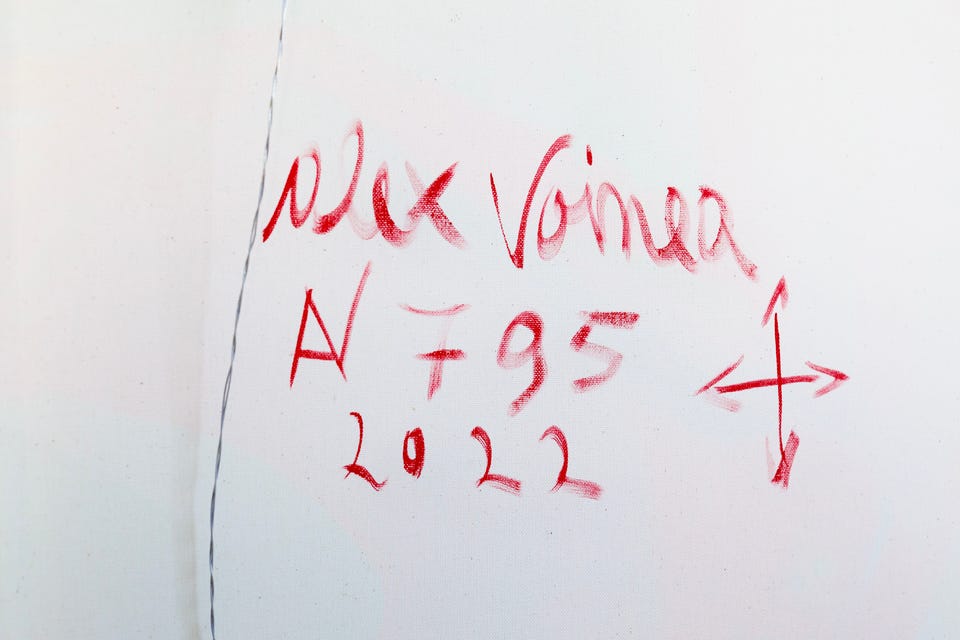 alex Voinea
AV 795
2022